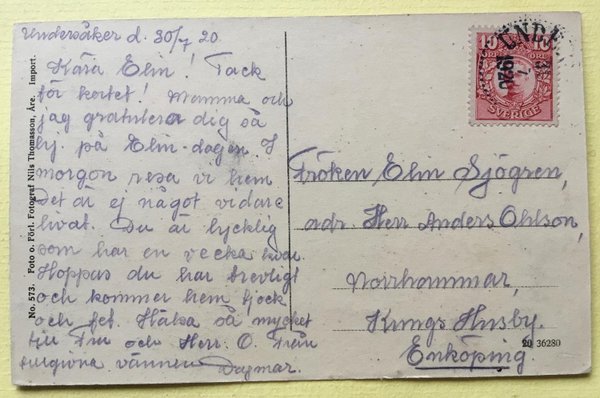 Undersåker d. 30/7 20.
Kära Elin! Tack
för kortet! Mamma och
jag gratulera dig så
hj. på Elin-dagen. I
morgon resa vi hem
Det är ej något vidare
livat. Du är lycklig
som har en vecka kvar.
Hoppas du har trevligt
och kommer hem tjock
och fet. Hälsa så mycket
till Fru och Herr O. Från
tillgivna vännen Dagmar.
No. 573. Foto o. Förl. Fotograf Nils Thomasson, Åre. Import.
10 10
ÖRE ÖRE
SVERIGE
UNDE
1920
Fröken Elin Sjögren,
adr. Herr Anders Ohlson,
Norrhammar,
Kungs Husby.
Enköping.
20 36280